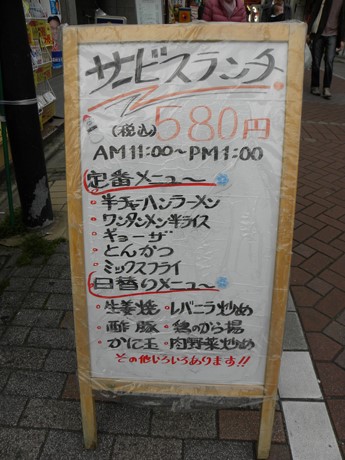 サービスランチ
(税込)580円
AM11:00~PM1:00
定番メニュー
・半チャーハンラーメン
・ワンタンメン半ライス
・ギョーザ
・とんかつ
・ミックスフライ
日替りメニュー
・生姜焼・レバニラ炒め
・酢豚・鶏のから揚
・かに玉・肉野菜炒め
その他いろいろあります!!